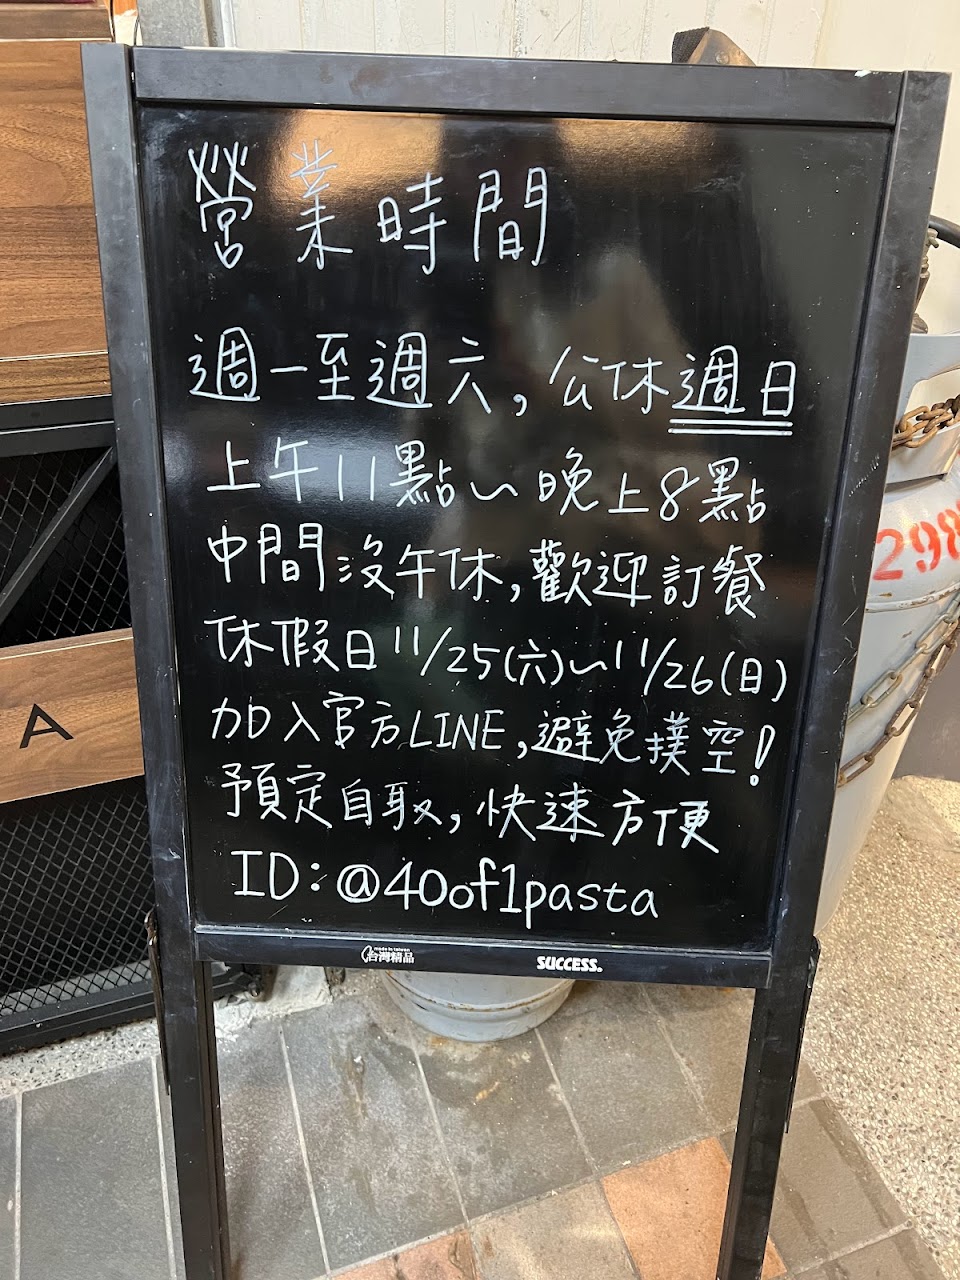 營業時間
週一至週六，公休週日
上午11點～晚上8點
中間沒午休，歡迎訂餐
休假日11/25(六)～11/26(日)
加入官方LINE，避免撲空！
預定自取，快速方便
ID：@40of1pasta
made in taiwan
台灣精品
SUCCESS.
298
A